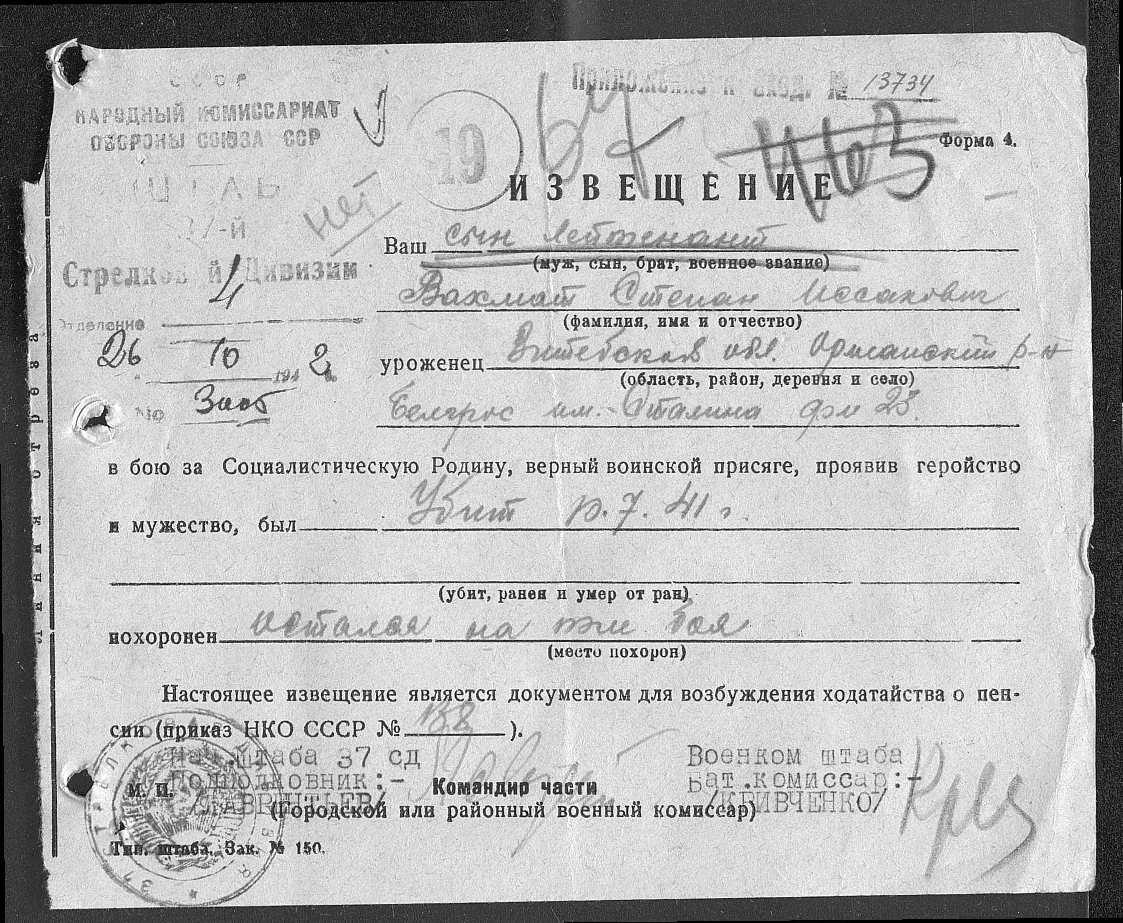 СССР
НАРОДНЫЙ КОМИССАРИАТ
ОБОРОНЫ СОЮЗА ССР
ШТАБ
37-й
Стрелковой Дивизии
4
Отделение
26 10 1942 г.
№
нет
19
Приложение к вход. № 13734
Форма 4.
ИЗВЕЩЕНИЕ
Ваш сын лейтенант
(муж, сын, брат, военное звание)
Вахмат Степан Иссакович
(фамилия, имя и отчество)
уроженец Витебская обл. Оршанский р-н
(область, район, деревня и село)
Белгрэс им. Сталина 23.
в бою за Социалистическую Родину, верный воинской присяге, проявив геройство
и мужество, был Убит 7. 41 г.
(убит, ранен и умер от ран)
похоронен остался на поле боя
(место похорон)
Настоящее извещение является документом для возбуждения ходатайства о пен-
сии (приказ НКО СССР № ).
Нач.штаба 37 сд
Военком штаба
Подполковник:-
Бат.комиссар:-
М. П.
Командир части
/ЛАВРЕНТЬЕВ/
/КРИВЧЕНКО/
(Городской или районный военный комиссар)
Тип. штаба. Зак. № 150.
линия отреза